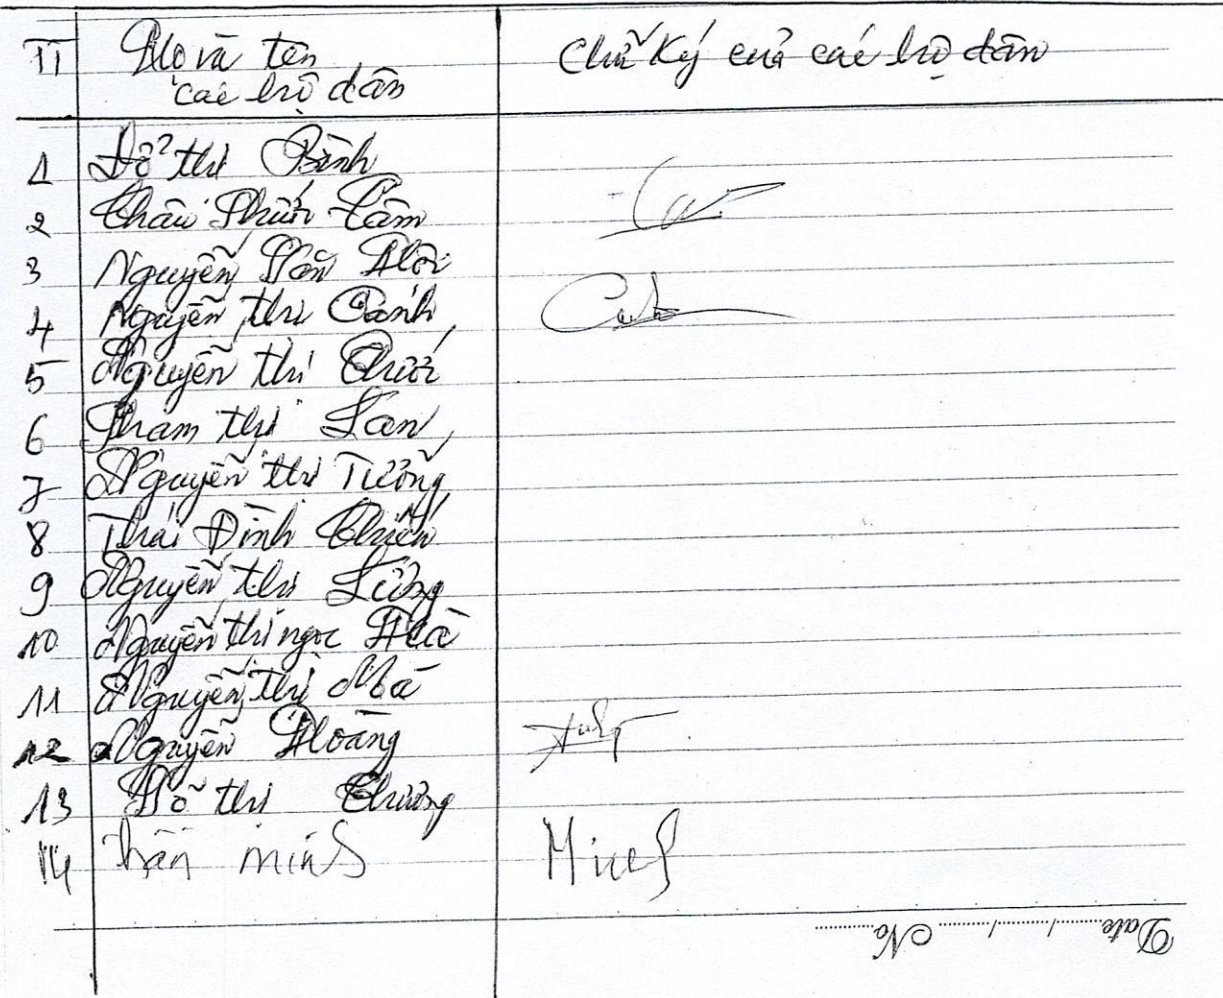 TT Họ và tên Chữ Ký của các hộ dân
các hộ dân
1 Đỗ thị Bình
2 Châu Phước Câm
3 Nguyễn Văn Hội
4 Nguyễn thị Cảnh
5 Nguyễn thị Chước
6 Phạm thị Lan
7 Nguyễn thị Tưởng
8 Thái Đình Chiến
9 Nguyễn thị Lửng
10 Nguyễn thị ngọc Hà
11 Nguyễn thị Mã
12 Nguyễn Hoàng
13 Võ thị Chưởng
14 trần minh Minh
Date / / No